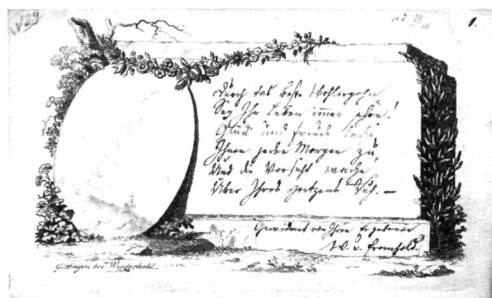 1.
Durch das beste Wohlergehn,
Sey Ihr Leben immer schön!
Glük und Freude
Ihnen jeden Morgen zu,
Und die Vorsicht wache
Über Ihres Hertzens Ruh. —
Gewidmet von Ihrem Ergebenen
W. v. Fromhold.
Göttingen bei Wiederhold.